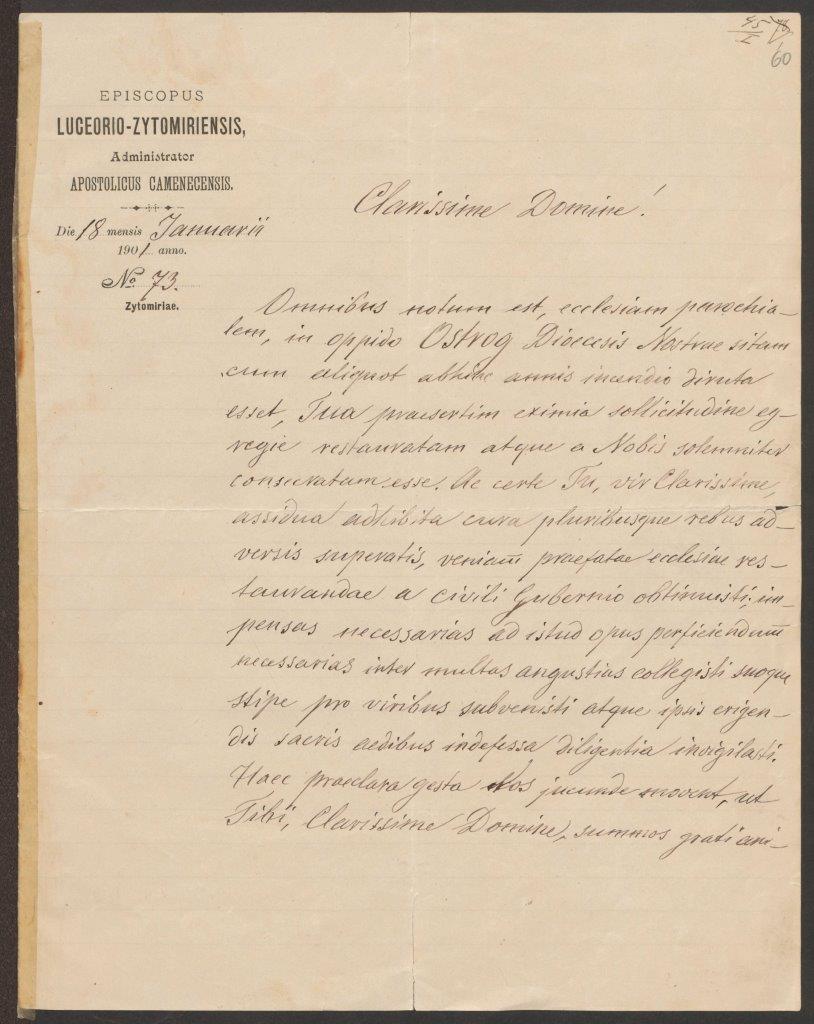 45
I
60
EPISCOPUS
LUCEORIO-ZYTOMIRIENSIS,
Administrator
APOSTOLICUS CAMENECENSIS.
Die 18 mensis Januarii
1901 anno.
No. 73.
Zytomiriae.
Clarissime Domine!
Omnibus notum est, ecclesiam parochia-
lem, in oppido Ostrog Dioecesis Nostrae sitam
cum aliquot abhinc annis incendio diruta
esset, Tua praesertim eximia sollicitudine eg-
regie restauratam atque a Nobis solemniter
consecratam esse. Ac certe Tu, vir Clarissime,
assidua adhibita cura pluribusque rebus ad-
versis superatis, veniam praefatae ecclesiae res-
taurandae a civili Gubernio obtinuisti, im-
pensas necessarias ad istud opus perficiendum
necessarias inter multas angustias collegisti suoque
stipe pro viribus subvenisti atque ipsis erigen-
dis sacris aedibus indefessa diligentia invigilasti.
Haec praeclara gesta Nos jucunde movent, ut
Tibi, Clarissime Domine, summos grati ani-